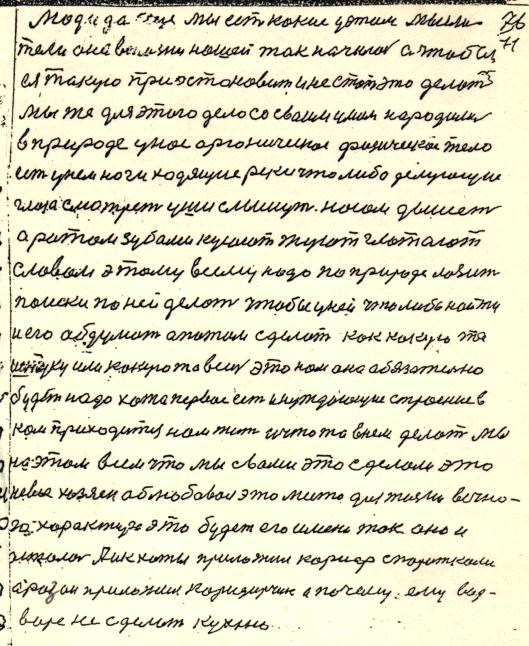 Люди да еще мы есть какие у этом мысли- 76
тели она в жизни нашей так начилас а чтобы 71
ея такую приостановит и не стат это делат
мы же для этого дело со своим умом народилис
в природе у нас органическое физическое тело
ест у нем ноги ходящие руки что либо делующие
глаза смотрет уши слышут. носом дышет
а ротом зубами кусают жуют глотают
словом этому всему надо по природе лазит
поиски по ней делат чтобы у ней что либо найти
и его абдумат а потом сделат как какую то
штуку или какуюто вещ это нам она абязательно
будет надо хотя первое ест и нуждающие строение в
ком приходится нам жит и что то в нем делат мы
на этом всем что мы с вами это сделали это
невое хозяен аблюбовал это место для жизни вечно-
го характера это будет его имени так оно и
осталос Аик хаты приложил коридор споратками
а разам приложил каридорчик а почему ему вад-
варе не сделат кухню